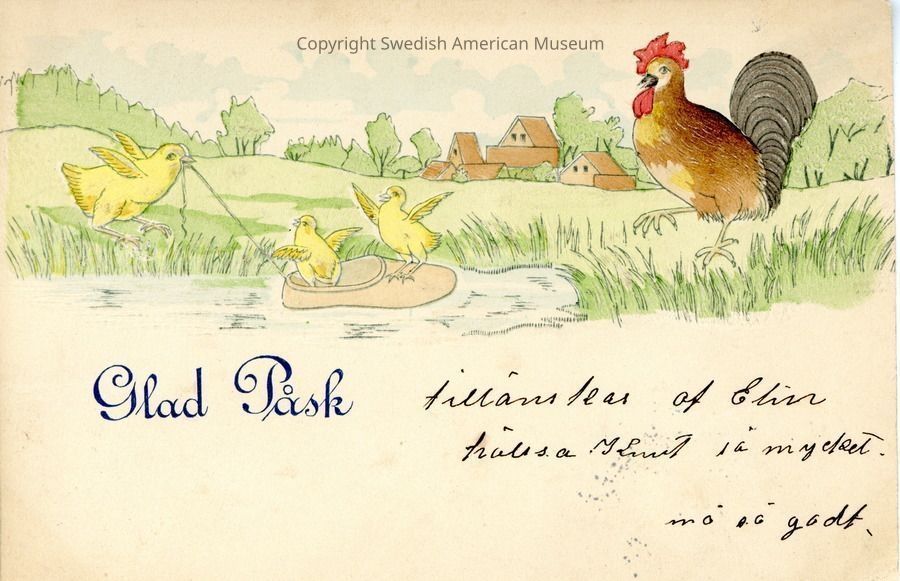 Copyright Swedish American Museum
Glad Påsk
tillönskas af Elin
hälssa Knut så mycket.
må så godt.